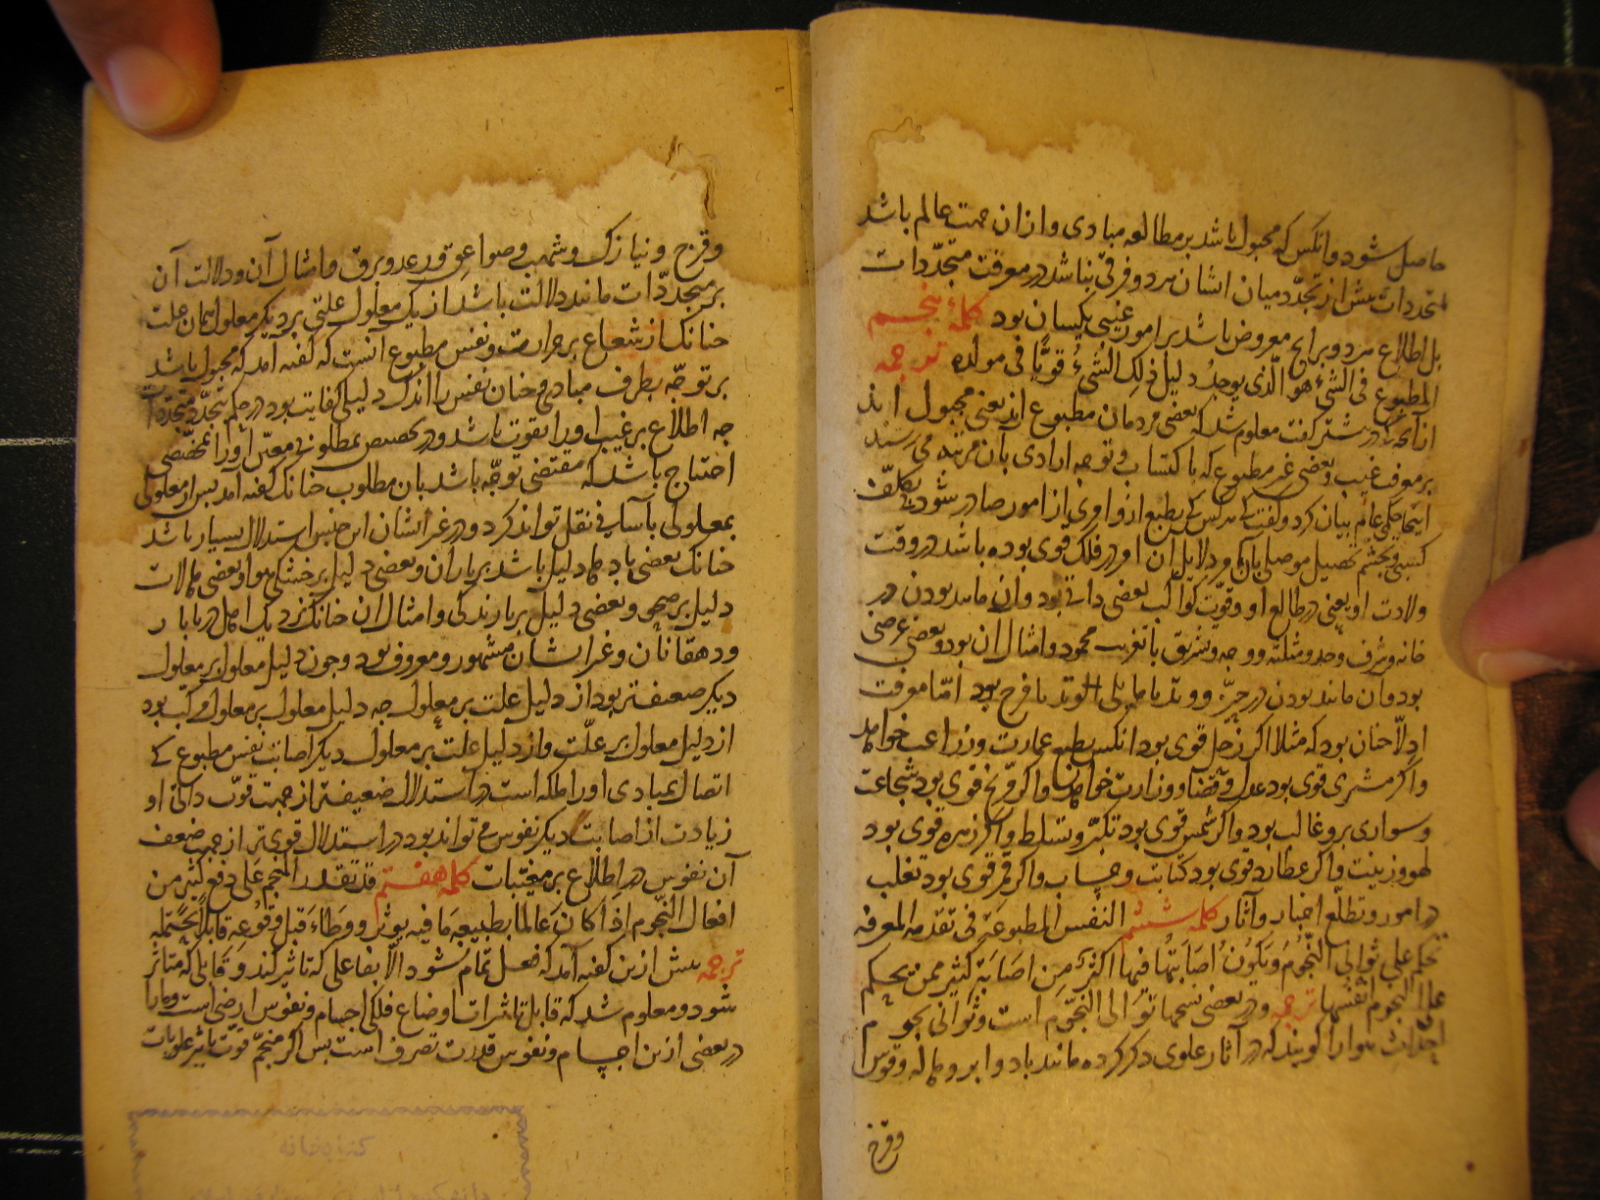 حاصل شود و آنکس که مجبول باشد بر مطالعه مبادی و از ان جهت عالم باشد
بتجددات پیش از تجدد میان ایشان هر دو فرقی نباشد در معرفت متجددات
بل اطلاع هر دو بر انچ معروض باشد بر امور غیبی یکسان بود کلمهٔ پنجم
المطبوع فی الشیء هو الذی یوجد دلیل ذلک الشیء قویا فی مولده ترجمه
از آنچه در پیشتر گفت معلوم شد که بعضی مردمان مطبوع اند یعنی مجبول اند
بر معرفت غیب و بعضی غیر مطبوع که باکتساب و توجه ارادی بان مرتبه می رسند
اینجا حکمی عام بیان کرد و گفت که هر کس که بطبع از و اوری از امور صادر شود بی تکلف
کسبی و تجشم تحصیل موصلی بآن امر دلایل آن امر در فلک قوی بوده باشد در وقت
ولادت او یعنی در طالع او و قوت کواکب بعضی ذاتی بود و آن مانند بودن در
خانه و شرف و حد و مثلثه و وجه و تشریق یا تغریب محمود و امثال ان بود و بعضی عرضی
بود و آن مانند بودن در حیز و وتد یا مایلی الوتد یا فرح بود اما معرفت
ادلا چنان بود که مثلا اگر زحل قوی بود آنکس بطبع عمارت و زراعت خواهد
و اگر مشتری قوی بود عدل و قضا و وزارت خواهد و اگر مریخ قوی بود شجاعت
و سواری برو غالب بود و اگر شمس قوی بود تکبر و تسلط و اگر زهره قوی بود
لهو و زینت و اگر عطارد قوی بود کتابت و حساب و اگر قمر قوی بود تغلب
در امور و تطلع اخبار و آثار کلمه ششم النفس المطبوعة فی تقدمه المعرفه
تحکم علی ثوانی النجوم و تکون اصابتها فیها اکثر من اصابة کثیر ممن یحکم
علی النجوم انفسها ترجمه و در بعضی نسخها توالی النجوم است و ثوانی نجوم
احداث هوا را گویند که در آثار علوی ذکر کرده مانند باد و ابر و هاله و قوس
وقزح
وقزح و نیازک و شهب و صواعق و رعد و برق و امثال آن و دلالت آن
بر متجددات مانند دلالت باشد از یک معلول علتی بر دیگر معلول همان علت
چنانک از شعاع بر حرارت و نفس مطبوع آنست که گفته آمد که مجبول باشد
بر توجه بطرف مبادی و چنان نفس را اندک دلیلی کفایت بود در حکم بتجدد متجددات
چه اطلاع بر غیب او را بقوت باشد و در تخصیص بمطلوبی معین او را بمخصصی
احتیاج باشد که مقتضی توجه باشد بان مطلوب چنانک گفته آمد پس از معلولی
بمعلولی باسانی نقل تواند کرد و در غیر ایشان این جنس استدلال بسیار باشد
چنانک بعضی باد ها دلیل باشد بر باران و بعضی دلیل بر خشکی هوا و بعضی هالات
دلیل بر صحو و بعضی دلیل بر بارندگی و امثال ان چنانک نزدیک اهل دریابار
و دهقانان و غیر ایشان مشهور و معروف بود و چون دلیل معلول بر معلول
دیگر ضعیفتر بود از دلیل علت بر معلول چه دلیل معلول بر معلول مرکب بود
از دلیل معلول بر علت و از دلیل علت بر معلول دیگر اصابت نفس مطبوع که
اتصال بمبادی او را ملکه است در استدلال ضعیفتر از جهت قوت ذاتی او
زیادت از اصابت دیگر نفوس می تواند بود در استدلال قوی تر از جهت ضعف
آن نفوس در اطلاع بر مغیبات کلمه هفتم قد یقدر المنجم علی دفع کثیر من
افعال النجوم اذا کان عالما بطبیعة ما فیه یوثر و وطاء قبل وقوعه قابلا یحتمله
ترجمه پیش ازین گفته آمد که فعل تمام نشود الا بفاعلی که تاثیر کند و قابلی که متاثر
شود و معلوم شد که قابل تاثیرات اوضاع فلکی اجسام و نفوس ارضی است و ما را
در بعضی ازین اجسام و نفوس قدرت تصرف است پس اگر منجم قوت تاثیر علویات
کتابخانه